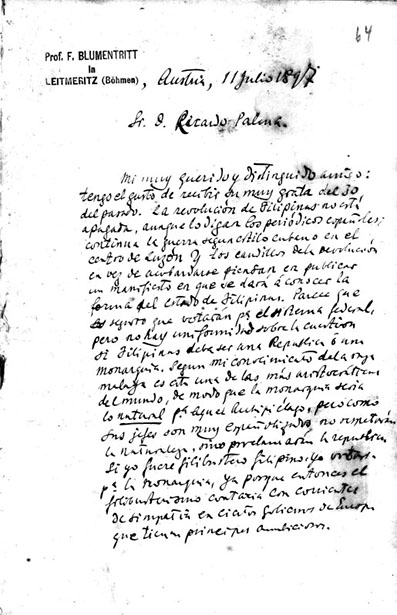 64
Prof. F. BLUMENTRITT
in
LEITMERITZ (Böhmen)
, Austria, 11 Julio 1897
Sr. D. Ricardo Palma.
Mi muy querido y distinguido amigo:
tengo el gusto de recibir su muy grata del 30
del pasado. La revolución de Filipinas no está
apagada, aunque lo digan los periódicos españoles;
continua la guerra segun estilo cubano en el
centro de Luzón y los caudillos de la revolución
en vez de acobardarse piensan en publicar
un manifiesto en que se dará á conocer la
forma del Estado de Filipinas. Parece que
es seguro que votarán pr el sistema federal,
pero no hay uniformidad sobre la cuestion
si Filipinas deba ser una Republica ó una
monarquia. Segun mi conocimiento de la raza
malaya es esta una de las más aristocráticas
del mundo, de modo que la monarquia seria
lo natural pa aquel Archipiélago, pero como
sus jefes son muy españolizados, no respetarán
la naturaleza, sino proclamarán la republica.
Si yo fuere filibustero filipino, yo votara
pr la monarquia, ya porque entonces el
filibusterismo contaria con corrientes
de simpatia en ciertos gobiernos de Europa
que tienen principes ambiciosos.